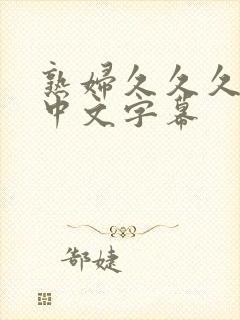 熟婦久久久
中文字幕
郜婕